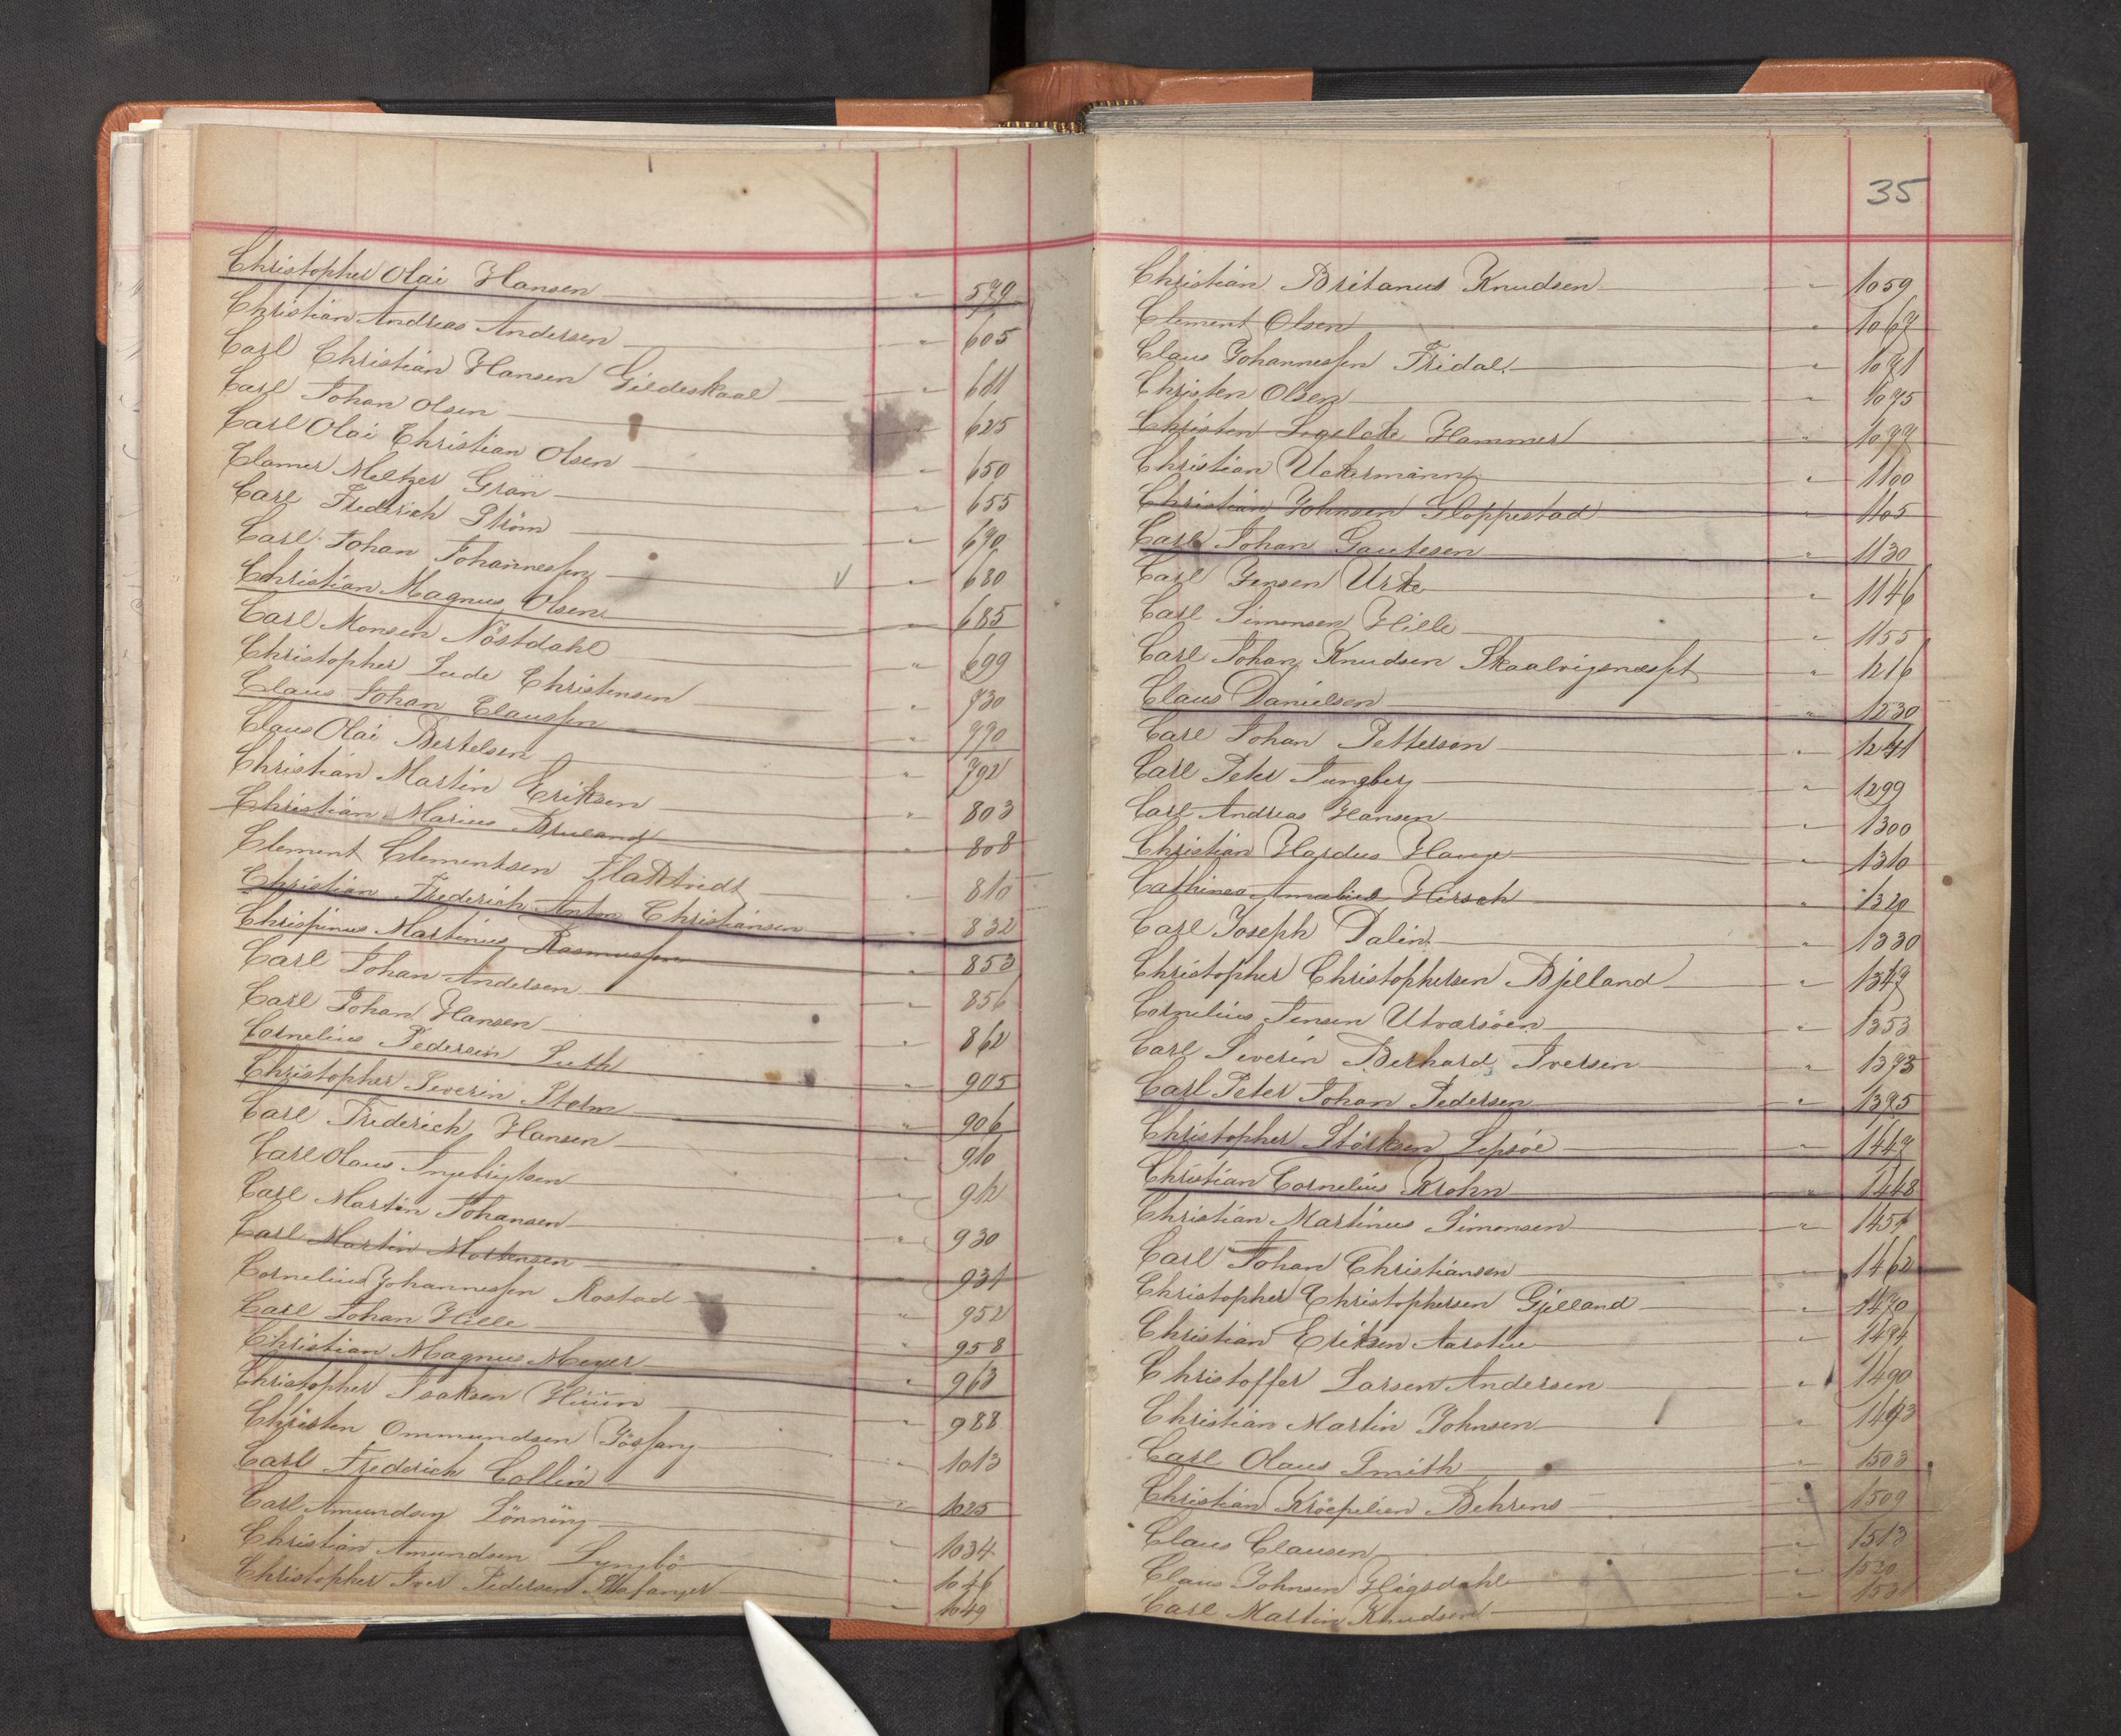 Christopher Olai Hansen " 579
Christian Andreas Andersen " 605
Carl Christian Hansen Gildeskaal " 611
Carl Johan Olsen " 625
Carl Olai Christian Olsen " 650
Clamer Meltzer Gran " 655
Carl Frederich Strøm " 670
Carl Johan Johannessen " 680
Christian Magnus Olsen " 685
Carl Monsen Nøstdahl " 699
Christopher Lude Christensen " 730
Claus Johan Claussen " 770
Claus Olai Bertelsen " 792
Christian Martin Eriksen " 803
Christian Marius " 808
Clement Clementsen " 810
Christian Frederich Anton Christiansen " 832
Chrispinus Martinus Rasmussen " 853
Carl Johan Andersen " 856
Carl Johan Hansen " 862
Cornelius Pedersen Luth " 905
Christopher Severin Stolm " 906
Carl Frederich Hansen " 910
Carl Olaus Ingebrigtsen " 912
Carl Martin Johansen " 930
Carl Martin Mortensen " 931
Cornelius Johannessen Rostad " 952
Carl Johan Hille " 958
Christian Magnus Meyer " 963
Christopher Isaksen Huun " 988
Christen Ommundsen Jøsfang " 1013
Carl Frederich Collin " 1025
Carl Amundsen Lønning " 1034
Christian Amundsen Lyngbø " 1046
Christopher Iver Pedersen Stafanger " 1049
35
Christian Britanus Knudsen " 1059
Clement Olsen " 1067
Claus Johannessen Fridal " 1071
Christen Olsen " 1075
Christen Hammer " 1077
Christian Uckermann " 1100
Christian Johnsen Gloppestad " 1105
Carl Johan Gautesen " 1130
Carl Jensen Urke " 1146
Carl Simonsen Hille " 1155
Carl Johan Knudsen Skaalvigsnæsset " 1216
Claus Danielsen " 1230
Carl Johan Petterson " 1271
Carl Peter Jungberg " 1299
Carl Andreas Hansen " 1300
Christian Hardus Hauge " 1310
Cathinca Amalie Hirsch " 1320
Carl Joseph Dalin " 1330
Christopher Christophersen Bjelland " 1347
Cornelius Jensen Utværsøen " 1353
Carl Severin Berhard Iversen " 1373
Carl Peter Johan Pedersen " 1375
Christopher Størksen Lepsøe " 1447
Christian Cornelius Krohn " 1448
Christian Martinus Simonsen " 1457
Carl Johan Christiansen " 1462
Christopher Christophersen Gjelland " 1470
Christian Eriksen Aarstue " 1474
Christoffer Larsen Andersen " 1490
Christian Martin Johnsen " 1493
Carl Olaus Smith " 1503
Christian Krøepelien Behrens " 1509
Claus Clausen " 1513
Claus Johnsen Høgsdahl " 1520
Carl Martin Knudsen " 1531